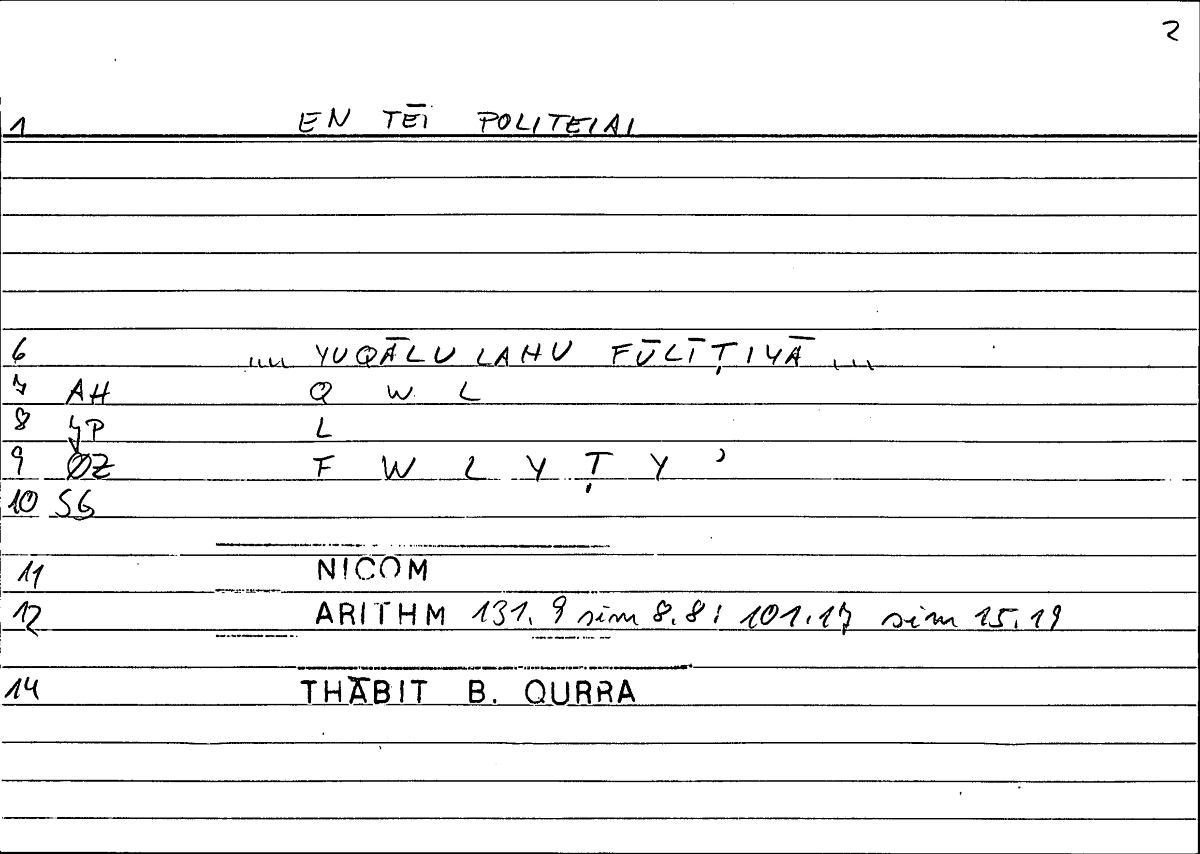 2
1 EN TĒI POLITEIAI
6 .... YUQĀLU LAHU FŪLĪṬIYĀ ...
7 AH Q W L
8 YP L
9 ØZ F W L Y Ṭ Y ʾ
10 SG
11 NICOM
12 ARITHM 131.9 sim 8.8; 101.17 sim 15.19
14 THĀBIT B. QURRA